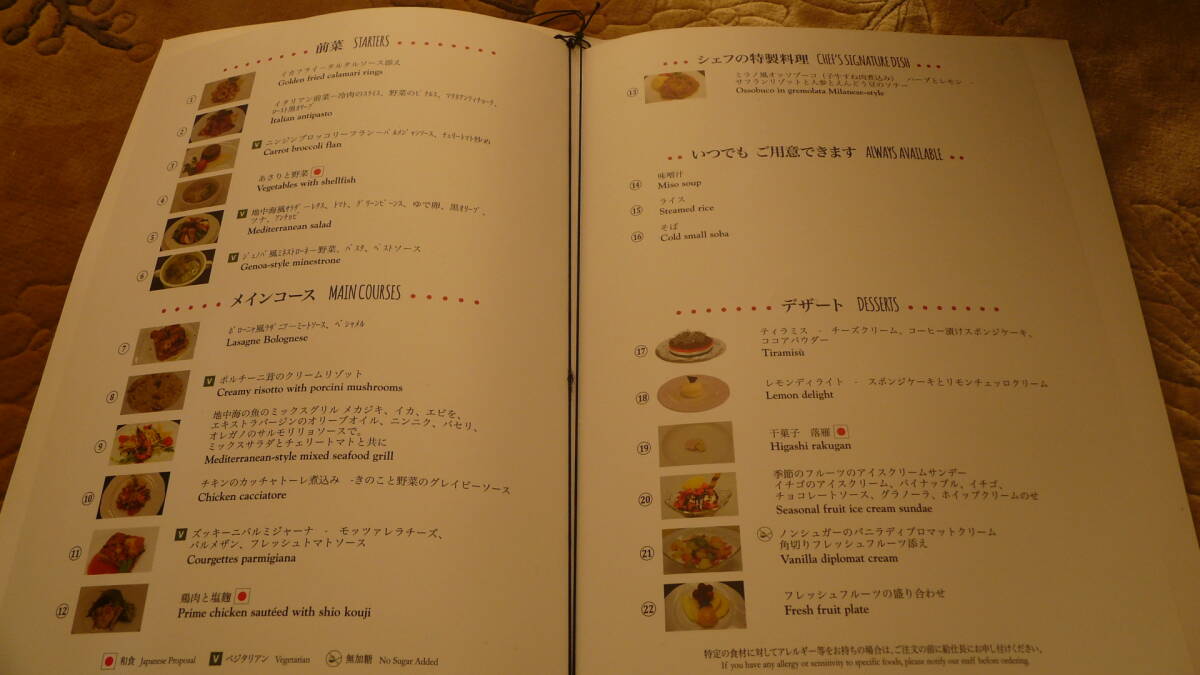 前菜 STARTERS
① イカフライータルタルソース添え
Golden fried calamari rings
② イタリアン前菜－冷肉のスライス、野菜のピクルス、マリネアンティチョーク、
ロースト黒オリーブ
Italian antipasto
③ V ニンジンブロッコリーフラン－パルメジャンソース、チェリートマト炒め
Carrot broccoli flan
④ あさりと野菜
Vegetables with shellfish
⑤ V 地中海風サラダ－レタス、トマト、グリーンビーンス、ゆで卵、黒オリーブ、
ツナ、アンチョビ
Mediterranean salad
⑥ V ジェノバ風ミネストローネ－野菜、パスタ、ペストソース
Genoa-style minestrone
メインコース MAIN COURSES
⑦ ボローニャ風ラザニア－ミートソース、ベシャメル
Lasagne Bolognese
⑧ V ポルチーニ茸のクリームリゾット
Creamy risotto with porcini mushrooms
⑨ 地中海の魚のミックスグリル メカジキ、イカ、エビを、
エキストラバージンのオリーブオイル、ニンニク、パセリ、
オレガノのサルモリリョソースで。
ミックスサラダとチェリートマトと共に
Mediterranean-style mixed seafood grill
⑩ チキンのカッチャトーレ煮込み -きのこと野菜のグレイビーソース
Chicken cacciatore
⑪ V ズッキーニパルミジャーナ - モッツァレラチーズ、
パルメザン、フレッシュトマトソース
Courgettes parmigiana
⑫ 鶏肉と塩麹
Prime chicken sautéed with shio kouji
和食 Japanese Proposal V ベジタリアン Vegetarian 無加糖 No Sugar Added
シェフの特製料理 CHEF'S SIGNATURE DISH
⑬ ミラノ風オッソブーコ（子牛すね肉煮込み） ハーブとレモン -
サフランリゾットと人参とえんどう豆のソテー
Ossobuco in gremolata Milanese-style
いつでも ご用意できます ALWAYS AVAILABLE
⑭ 味噌汁
Miso soup
⑮ ライス
Steamed rice
⑯ そば
Cold small soba
デザート DESSERTS
⑰ ティラミス - チーズクリーム、コーヒー漬けスポンジケーキ、
ココアパウダー
Tiramisù
⑱ レモンディライト - スポンジケーキとリモンチェッロクリーム
Lemon delight
⑲ 干菓子 落雁
Higashi rakugan
⑳ 季節のフルーツのアイスクリームサンデー
イチゴのアイスクリーム、パイナップル、イチゴ、
チョコレートソース、グラノーラ、ホイップクリームのせ
Seasonal fruit ice cream sundae
㉑ ノンシュガーのバニラディプロマットクリーム
角切りフレッシュフルーツ添え
Vanilla diplomat cream
㉒ フレッシュフルーツの盛り合わせ
Fresh fruit plate
特定の食材に対してアレルギー等をお持ちの場合は、ご注文の前に給仕長にお申し付けください。
If you have any allergy or sensitivity to specific foods, please notify our staff before ordering.